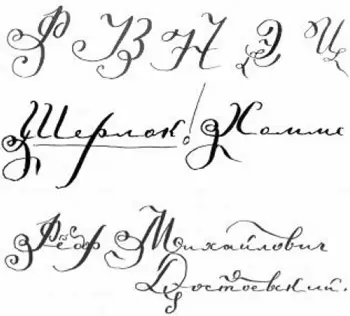 Ф В Н Э Ц
Шерлок! Холмс
Фёдор Михайлович
Достоевский.